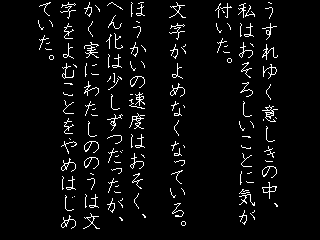 うすれゆく意しきの中、
私はおそろしいことに気が
付いた。
文字がよめなくなっている。
ほうかいの速度はおそく、
へん化は少しずつだったが、
かく実にわたしののうは文
字をよむことをやめはじめ
ていた。